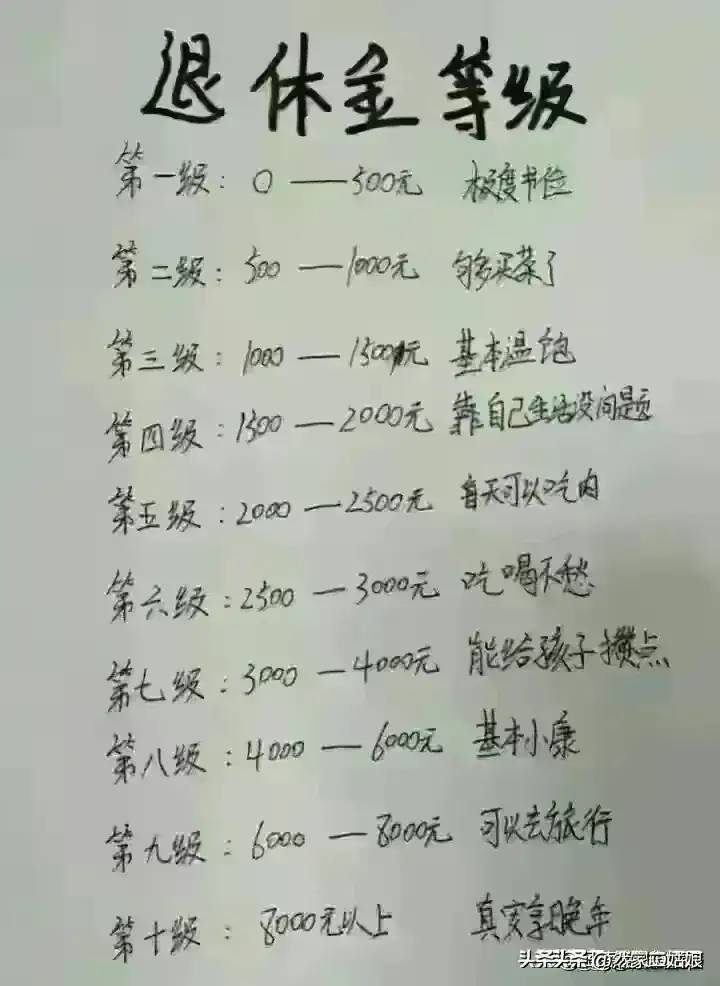 退休金等级
第一级：0——500元 极度书位
第二级：500——1000元 够买菜了
第三级：1000——1500元 基本温饱
第四级：1500——2000元 靠自己生活没问题
第五级：2000——2500元 每天可以吃肉
第六级：2500——3000元 吃喝不愁
第七级：3000——4000元 能给孩子攒点
第八级：4000——6000元 基本小康
第九级：6000——8000元 可以去旅行
第十级：8000元以上 真实享晚年
头条 @苏家四姑娘